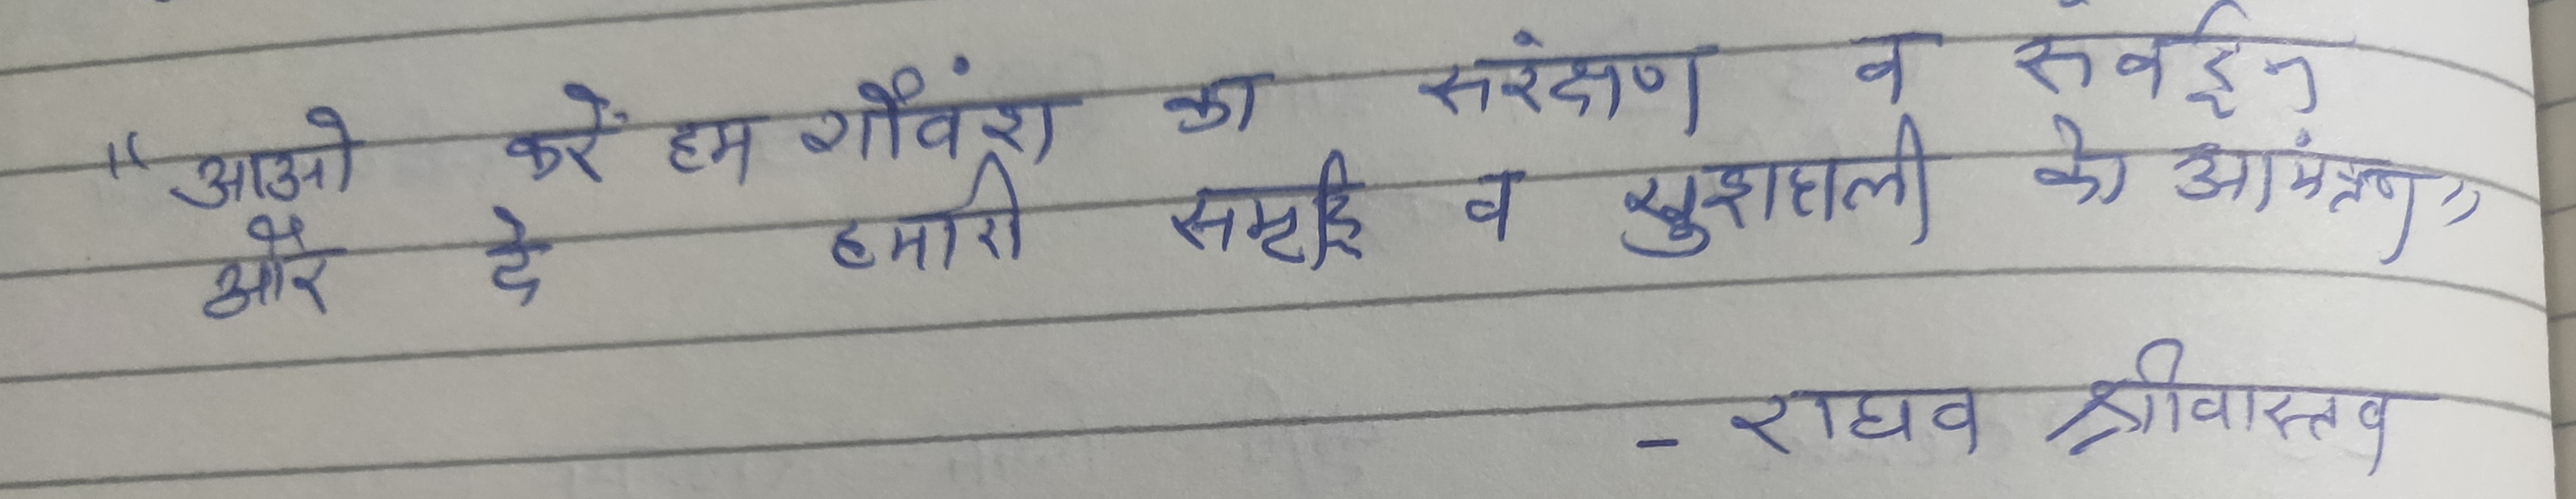 "आओ करें हम गौवंश का सरंक्षण व संवर्द्धन
और दे हमारी समृद्धि व खुशहाली को आमंत्रण"
- राघव श्रीवास्तव